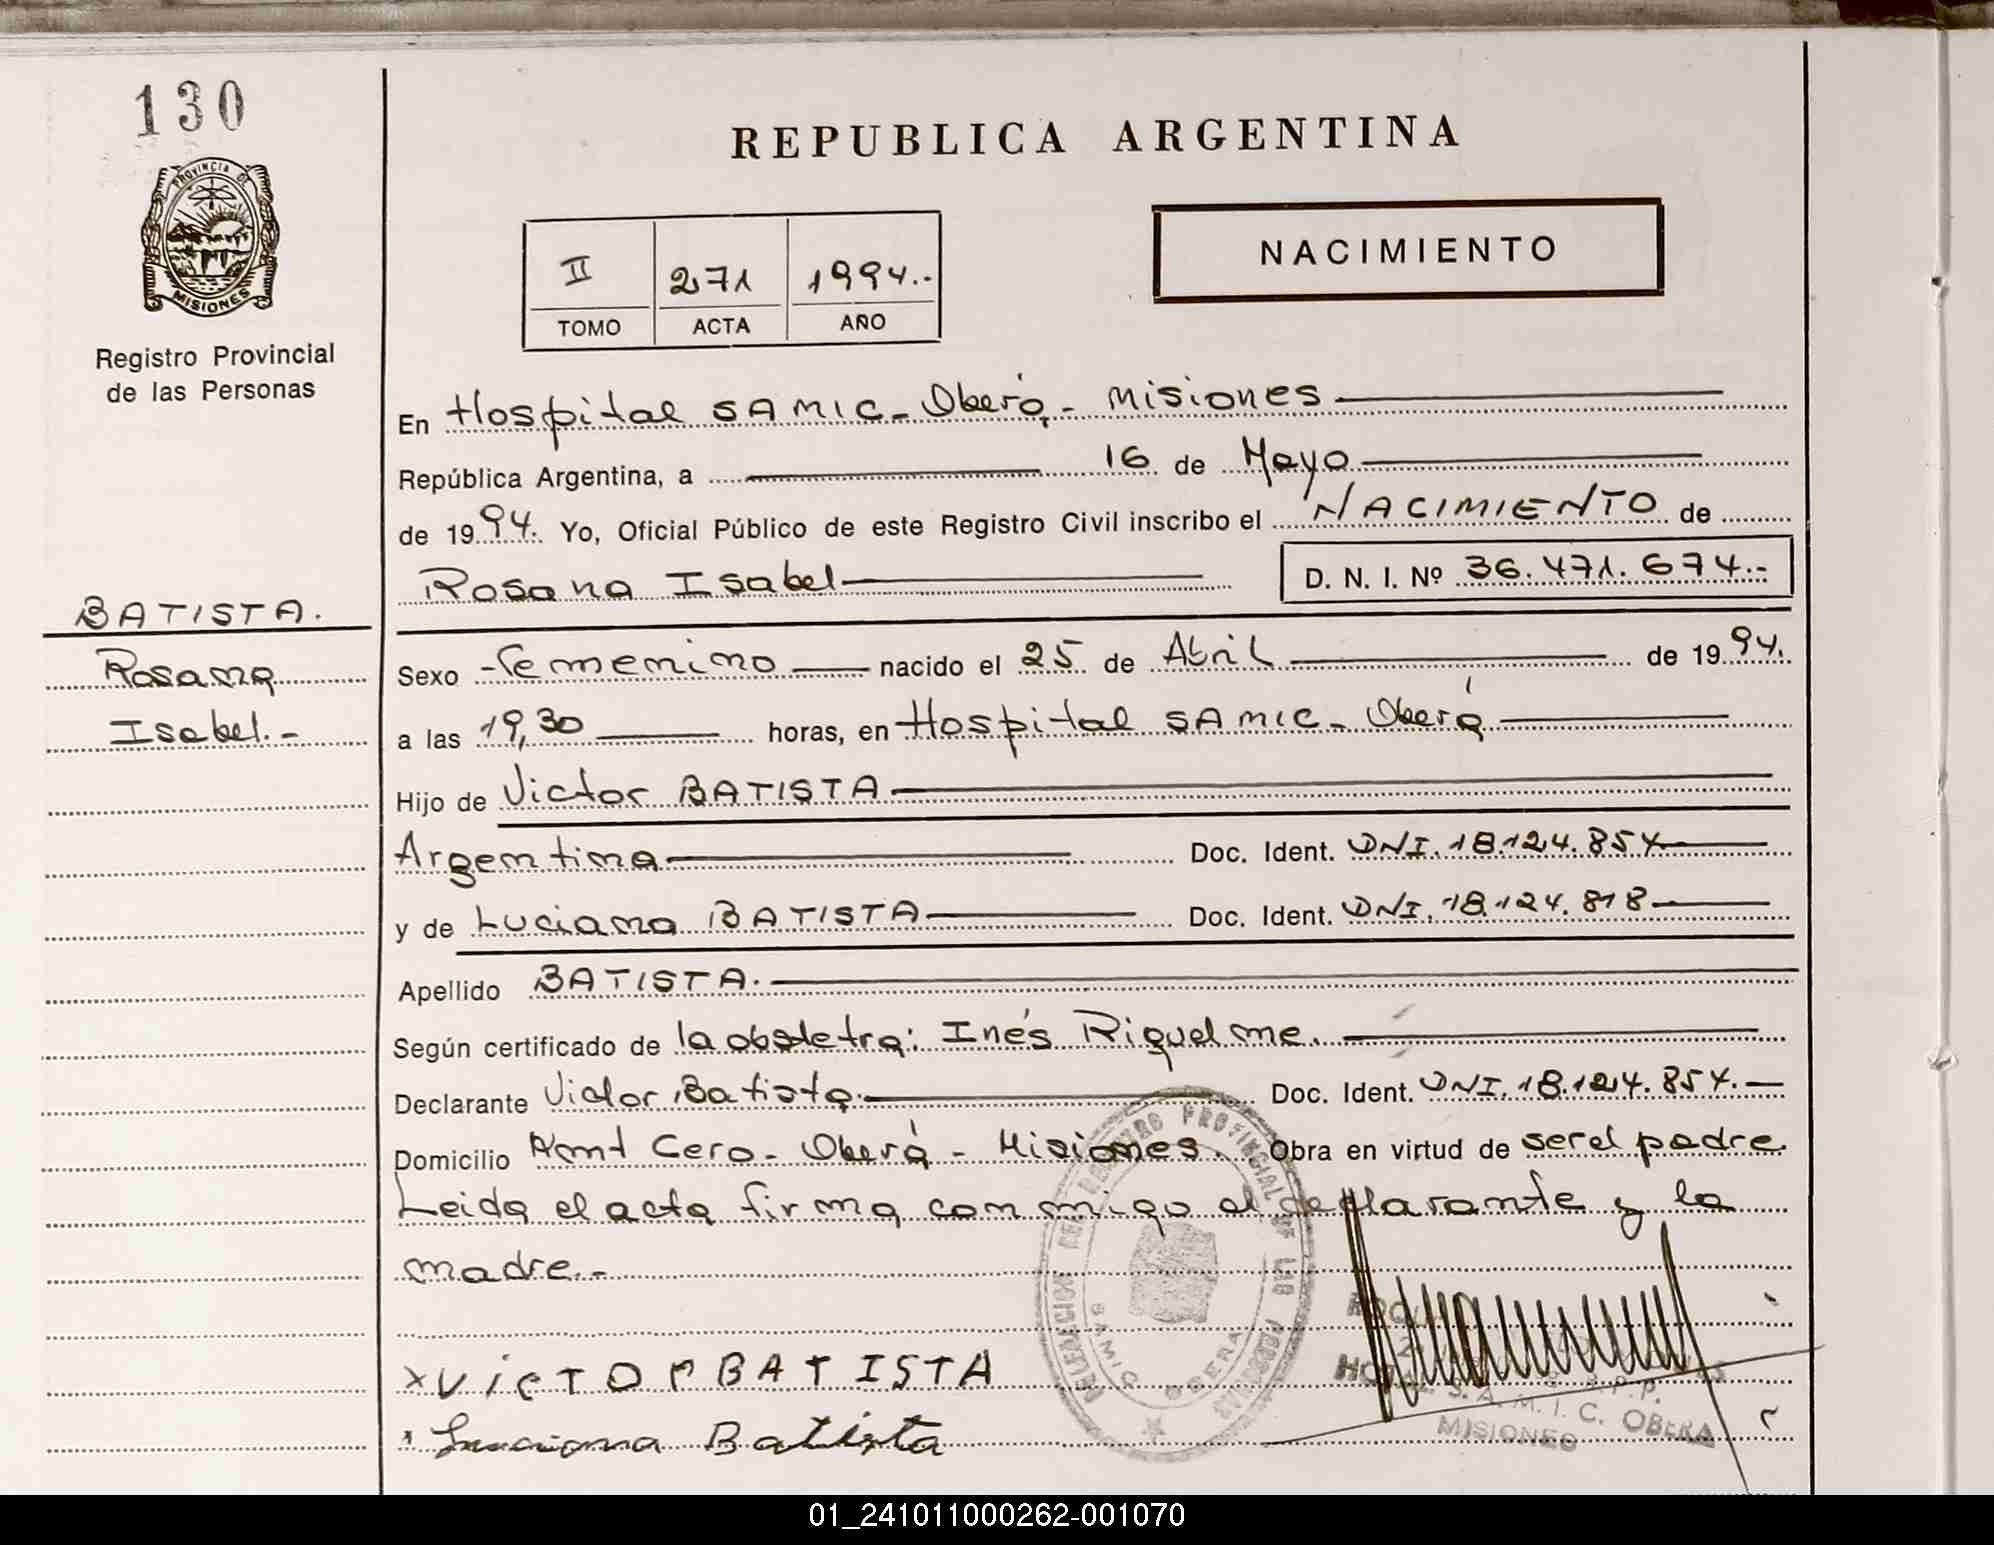 130
PROVINCIA DE
MISIONES
Registro Provincial
de las Personas
BATISTA.
Rosana
Isabel.-
REPUBLICA ARGENTINA
II 271 1994.-
TOMO ACTA AÑO
NACIMIENTO
En Hospital SAMIC - Oberá - Misiones
República Argentina, a 16 de Mayo
de 1994. Yo, Oficial Público de este Registro Civil inscribo el NACIMIENTO de
Rosana Isabel D. N. I. Nº 36.471.674.-
Sexo femenino nacido el 25 de Abril de 1994.
a las 19,30 horas, en Hospital SAMIC - Oberá
Hijo de Victor BATISTA
Argentina Doc. Ident. DNI. 18.124.854
y de Luciana BATISTA Doc. Ident. DNI. 18.124.818
Apellido BATISTA.
Según certificado de la obstetra: Inés Riquelme.
Declarante Victor Batista. Doc. Ident. DNI. 18.124.854.
Domicilio Cero - Oberá - Misiones. Obra en virtud de ser el padre.
Leida el acta firma conmigo el declarante y la
madre.-
DELEGACION DEL REGISTRO PROVINCIAL DE LAS PERSONAS
SAMIC OBERA
x VICTOR BATISTA
x Luciana Batista
S.A.M.I.C. OBERA
MISIONES
01_241011000262-001070